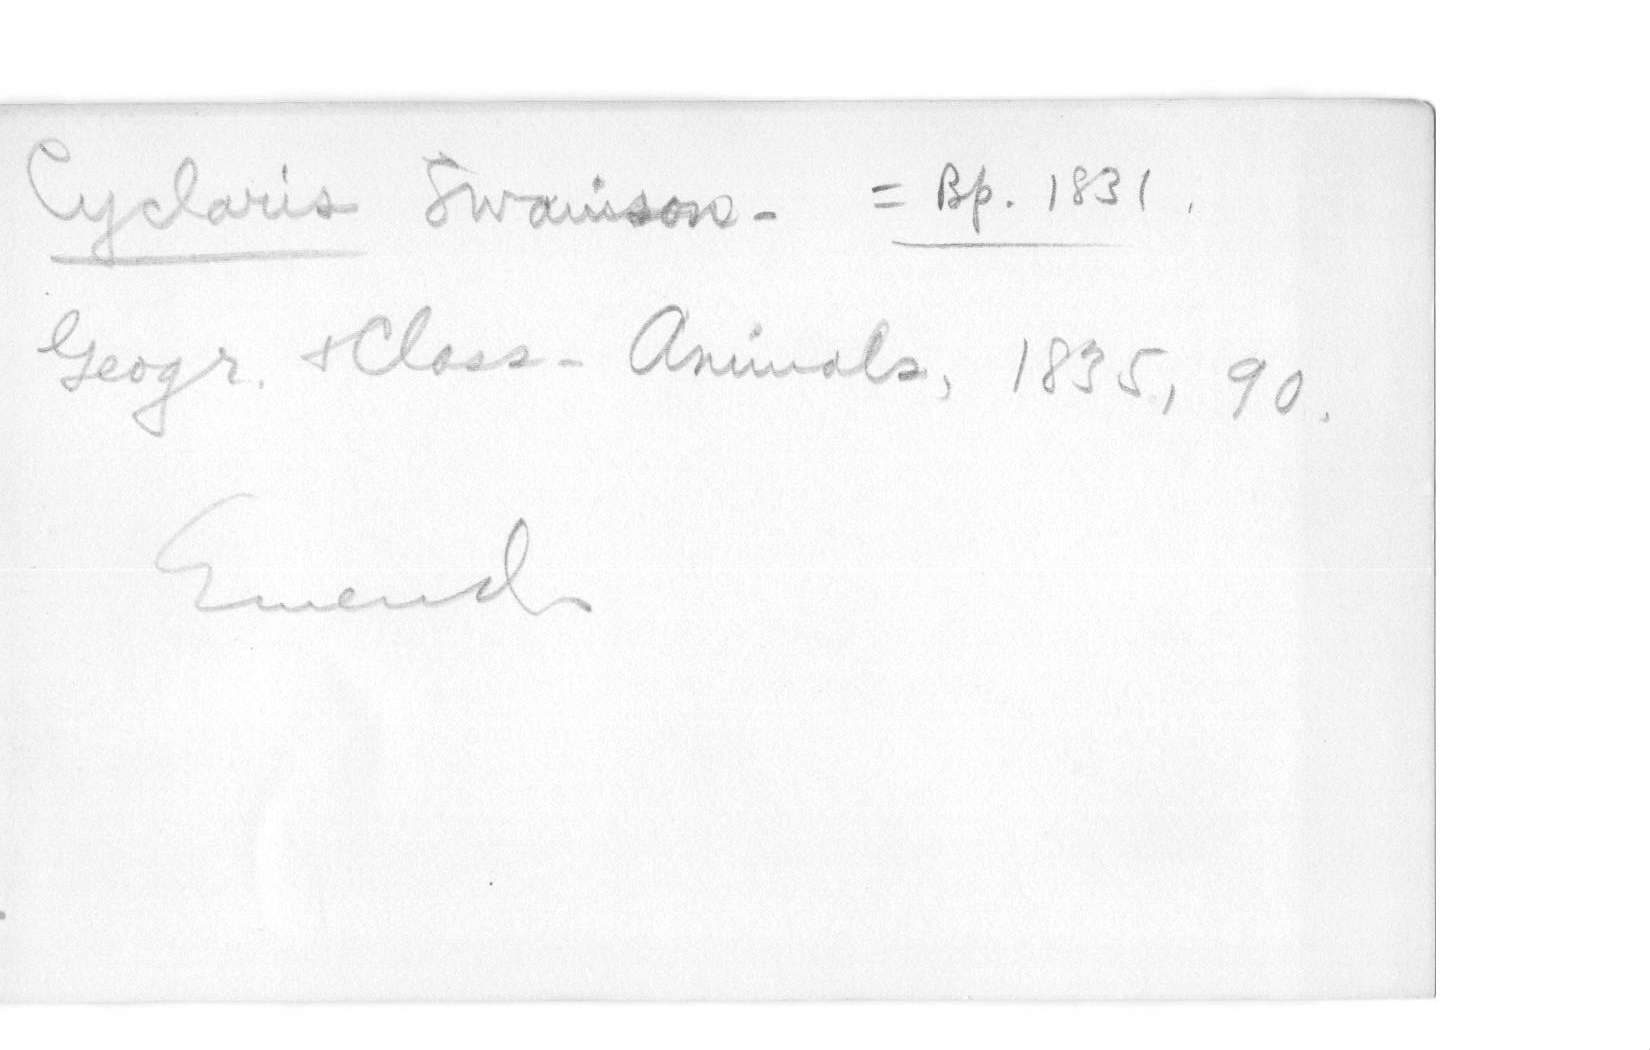 Cyclaris Swainson - = Bp. 1831.
Geogr. + Class - Animals, 1835, 90.
Emend.